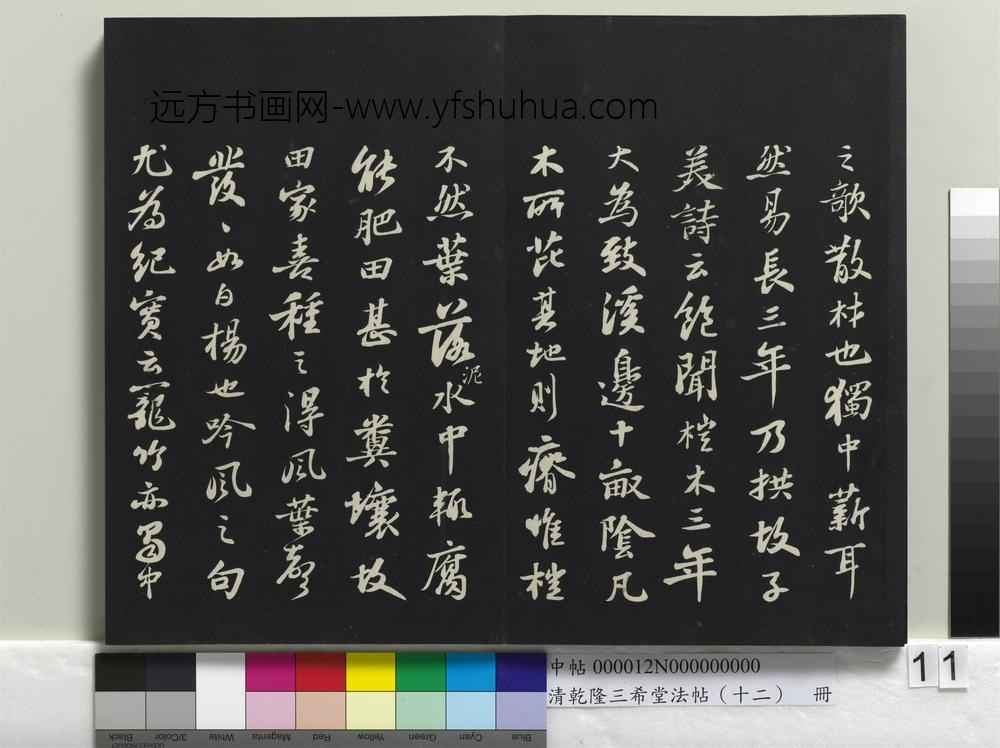 之歌散材也獨中薪耳
然易長三年乃拱故子
美詩云飽聞榿木三年
大為致溪邊十畝陰凡
木所芘其地則瘠惟榿
不然葉落泥水中輒腐
能肥田甚於糞壤故
田家喜種之得風葉聲
發〻如白楊也吟風之句
尤為紀實云籠竹亦蜀中
远方书画网-www.yfshuhua.com
中帖 000012N000000000
清乾隆三希堂法帖（十二） 冊
11
Black
3/Color
White
Magenta
Red
Yellow
Green
Cyan
Blue